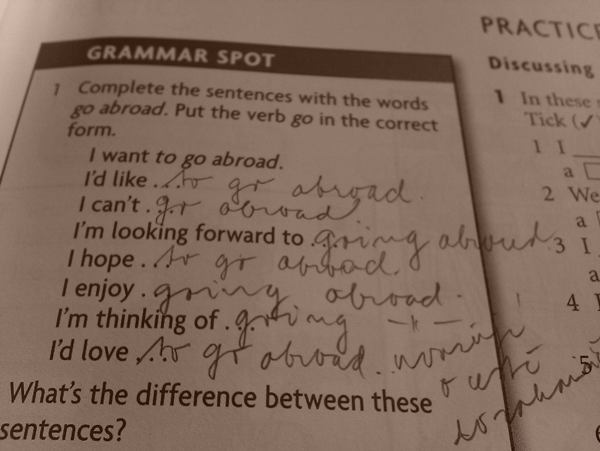 GRAMMAR SPOT
1 Complete the sentences with the words
go abroad. Put the verb go in the correct
form.
I want to go abroad.
I'd like ...to go abroad.
I can't .go abroad.
I'm looking forward to .going abroad.
I hope ..to go abroad.
I enjoy .going abroad.
I'm thinking of .going –"–
I'd love ..to go abroad.
What's the difference between these
sentences?
PRACTICE
Discussing
1 In these
Tick (✓
1 I
a
2 We
a
3 I
a
4
5
6